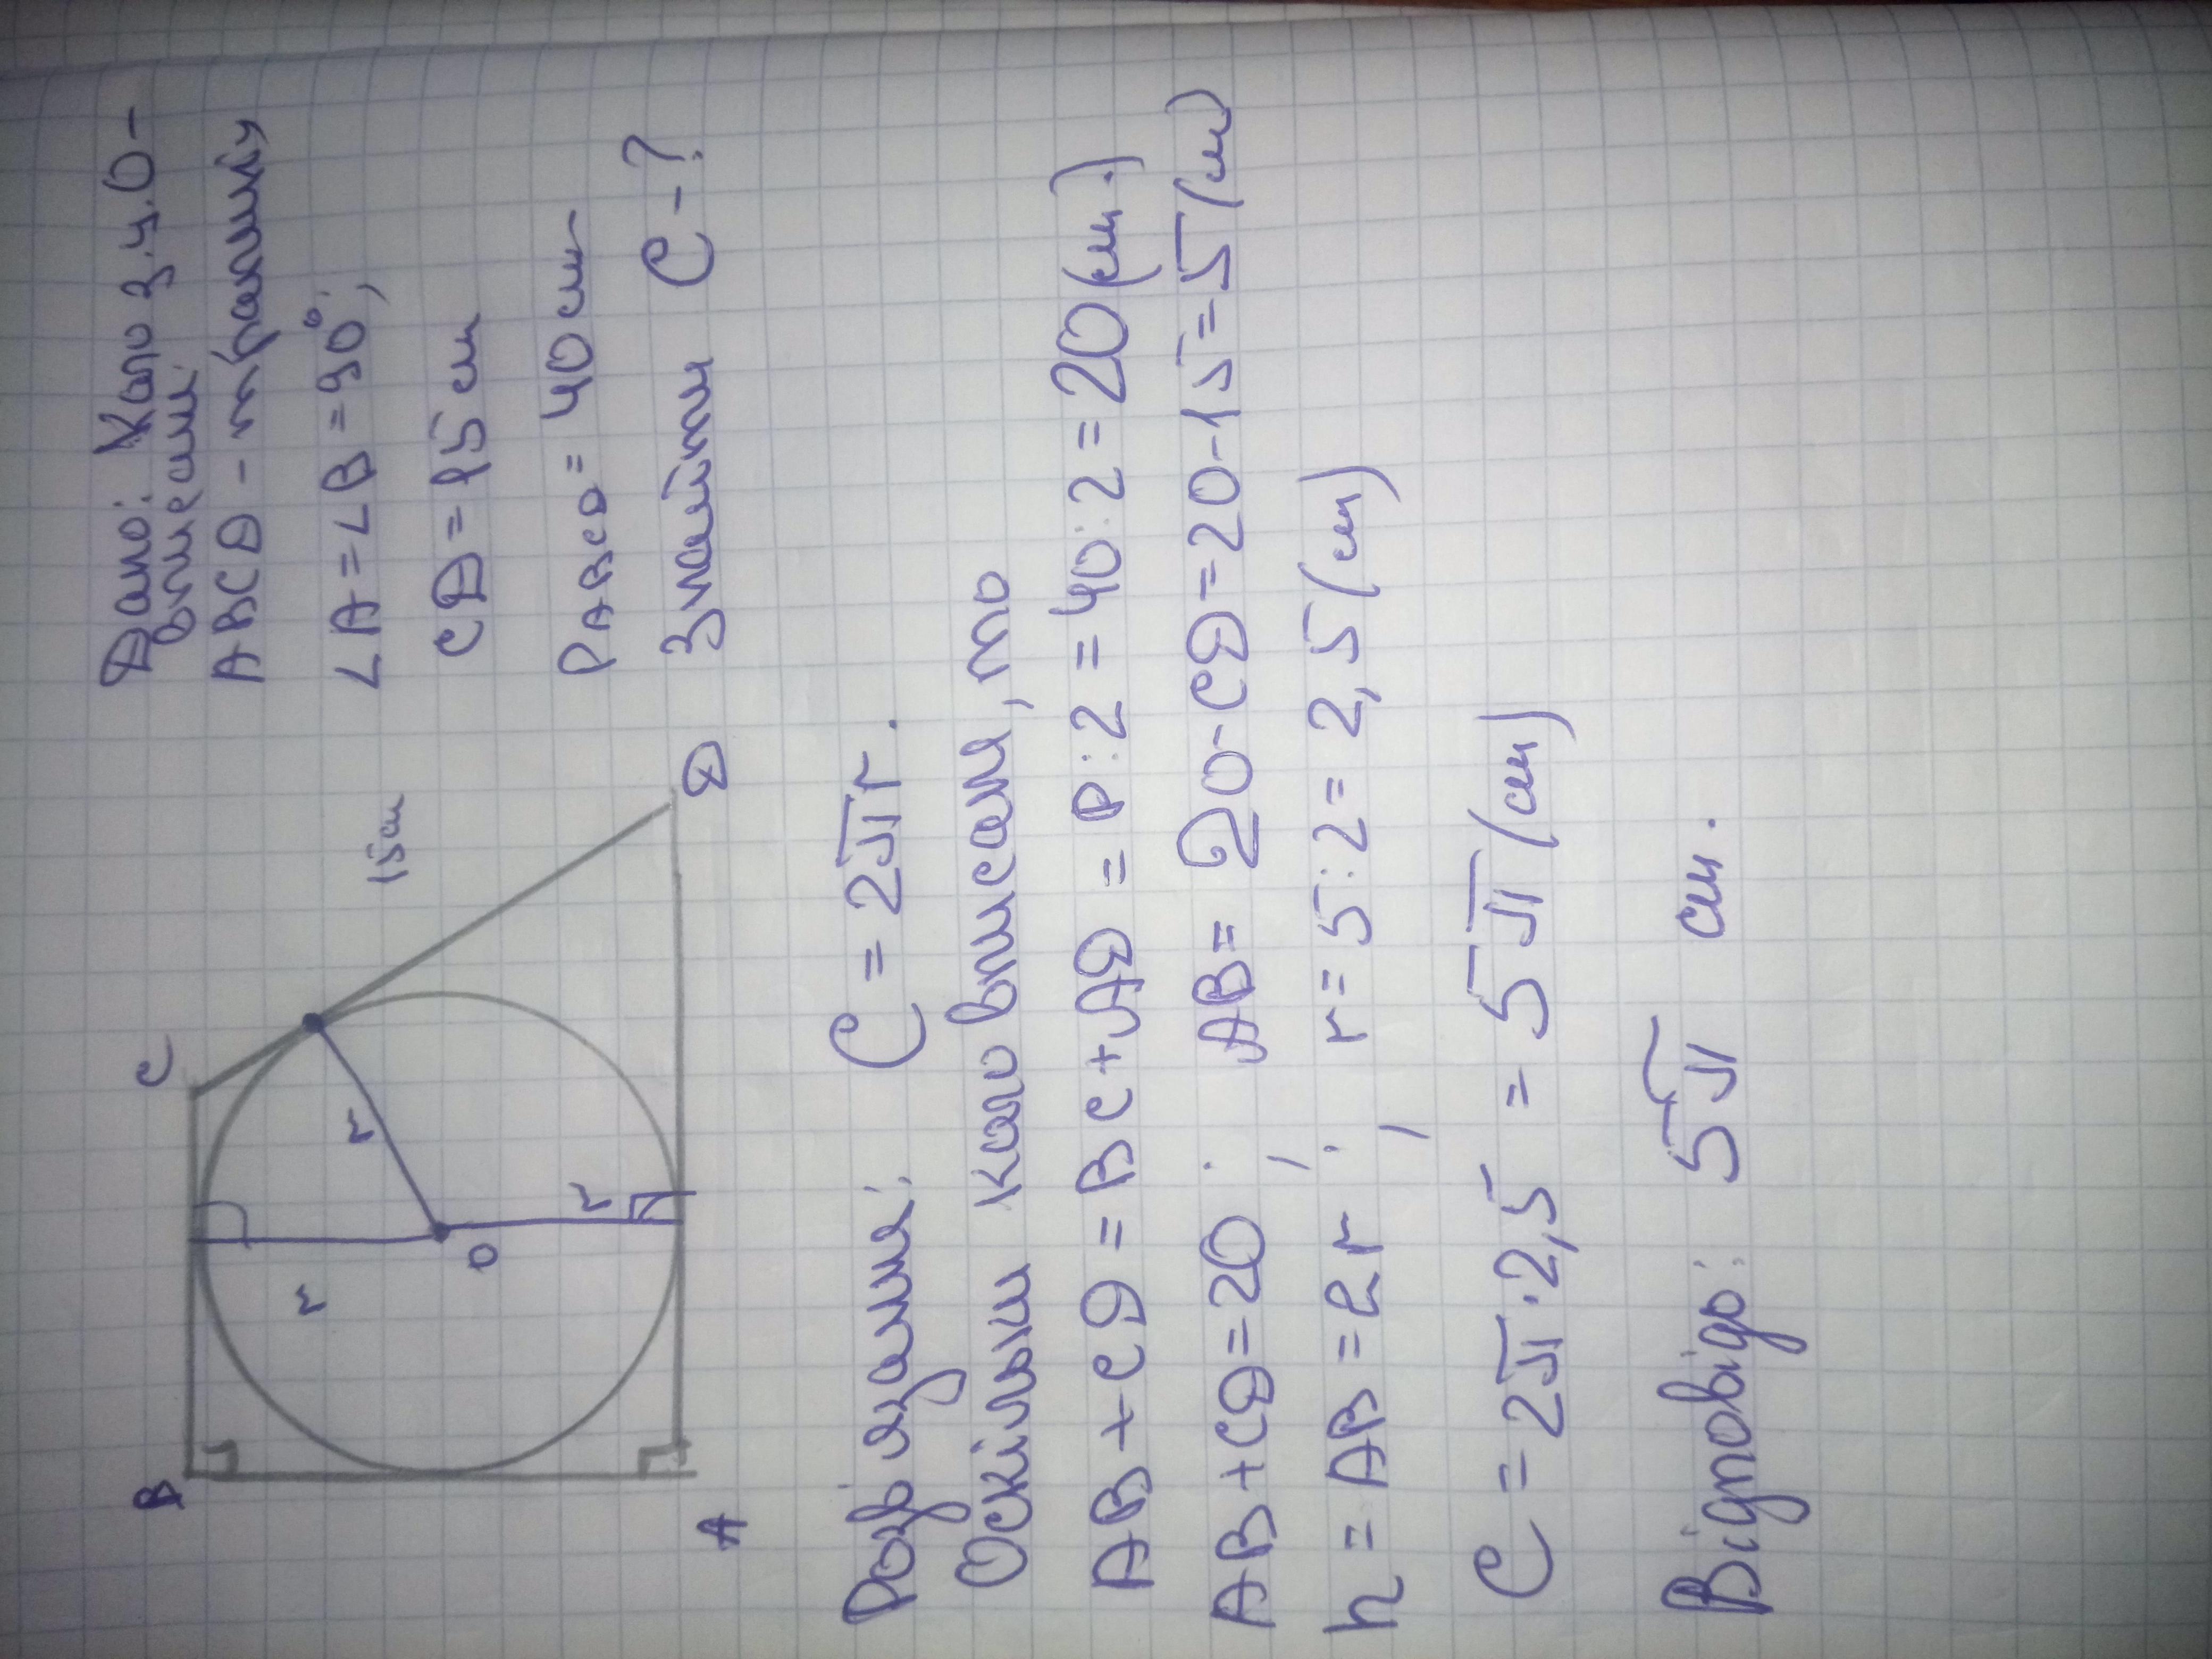 B
C
A
D
O
r
r
r
15 см
Дано: Коло з ц. О -
вписані.
ABCD - трапеція
∠A = ∠B = 90°;
CD = 15 см
P ABCD = 40 см
Знайти C - ?
Розв'язання: C = 2πr.
Оскільки коло вписане, то
AB + CD = BC + AD = P : 2 = 40 : 2 = 20 (см.)
AB + CD = 20; AB = 20 - CD = 20 - 15 = 5 (см)
h = AB = 2r; r = 5 : 2 = 2,5 (см)
C = 2π · 2,5 = 5π (см)
Відповідь: 5π см.